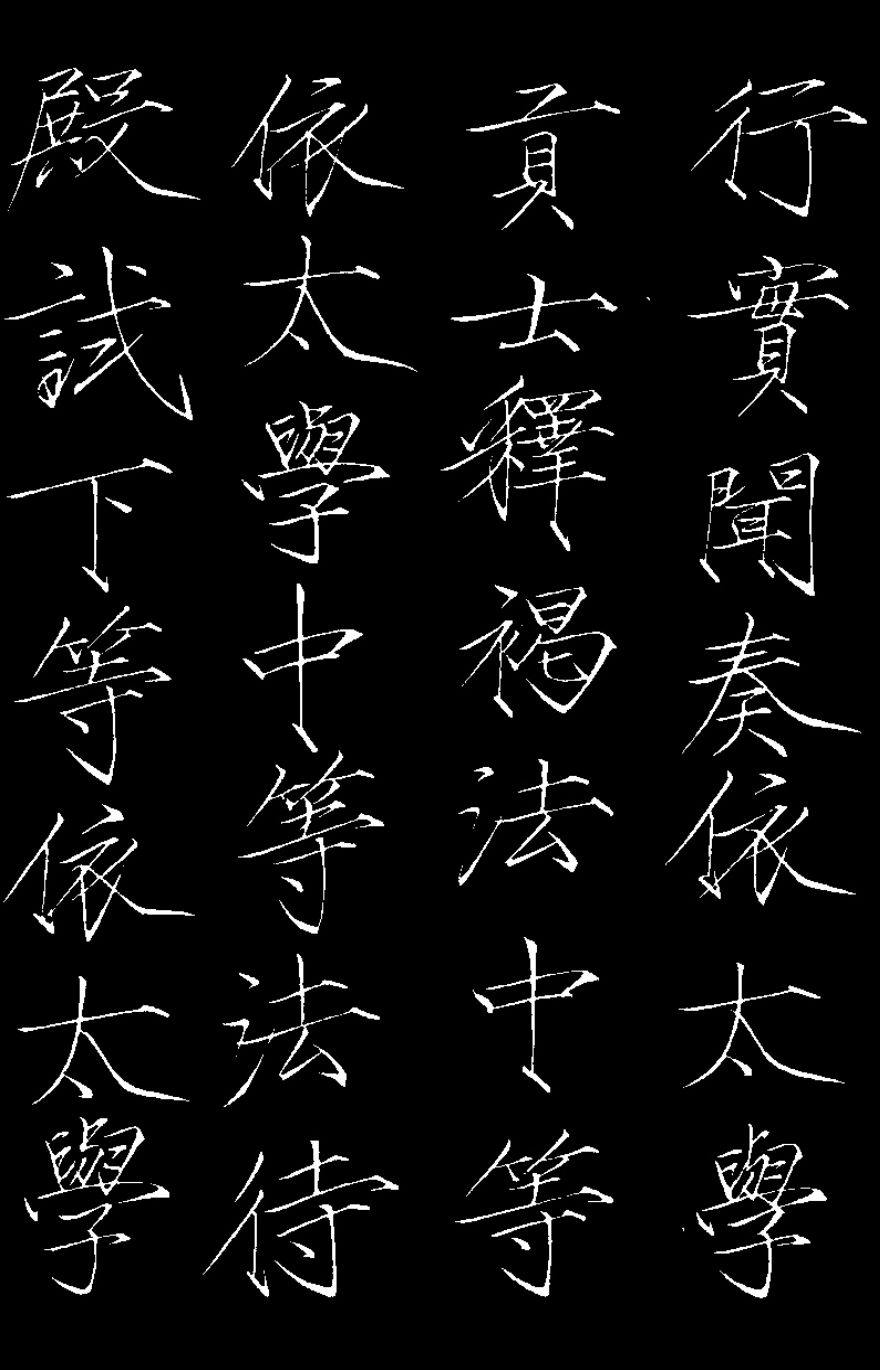 行實聞奏依太學
貢士釋褐法中等
依太學中等法待
殿試下等依太學